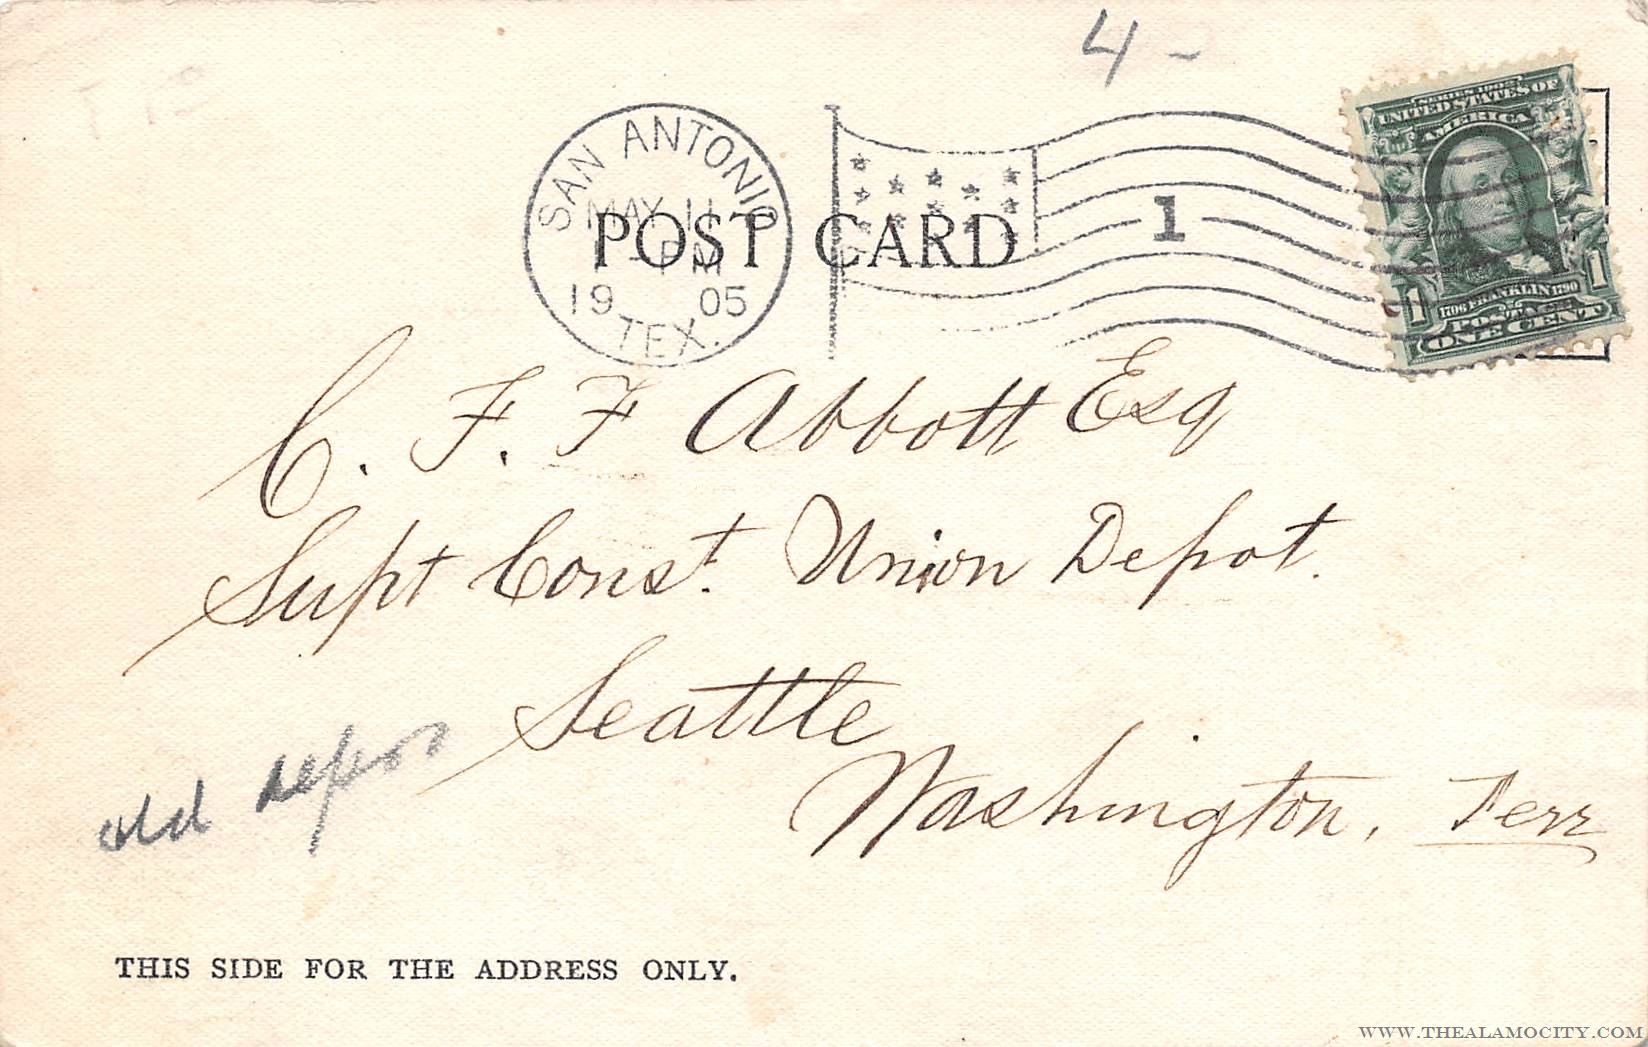 4 -
SERIES 1902
UNITED STATES OF
AMERICA
1706 FRANKLIN 1790
1 1
POSTAGE
ONE CENT
SAN ANTONIO
MAY 11
PM
19 05
TEX.
1
POST CARD
C. F. F Abbott Esq
Supt Const. Union Depot.
Seattle
Washington, Terr
old depot
THIS SIDE FOR THE ADDRESS ONLY.
WWW.THEALAMOCITY.COM